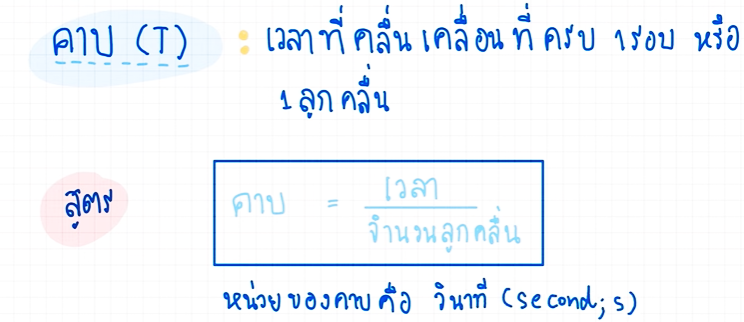 คาบ (T) : เวลาที่คลื่นเคลื่อนที่ครบ 1รอบ หรือ
1 ลูกคลื่น
สูตร
คาบ = เวลา
จำนวนลูกคลื่น
หน่วยของคาบคือ วินาที (second; s)